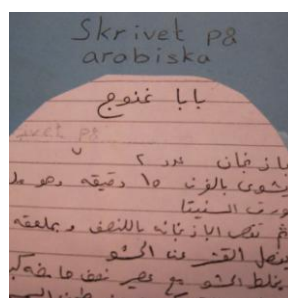 Skrivet på
arabiska
بابا غنوج
باذنجان عدد ٢
يشوى بالفرن ١٥ دقيقة وهو
بورق
ثم نقص الباذنجانه بالنصف وبملعقه
نفصل القشر عن الحشو
يخلط الحشو مع عصير نصف حامضه